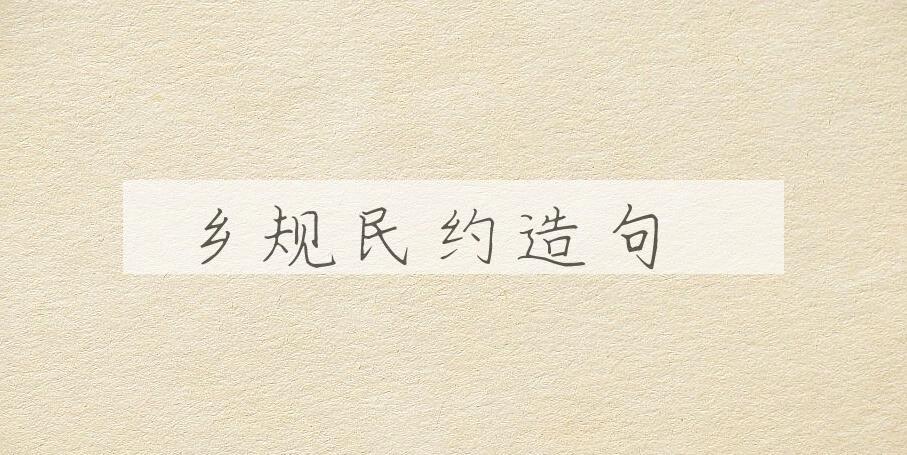 乡规民约造句